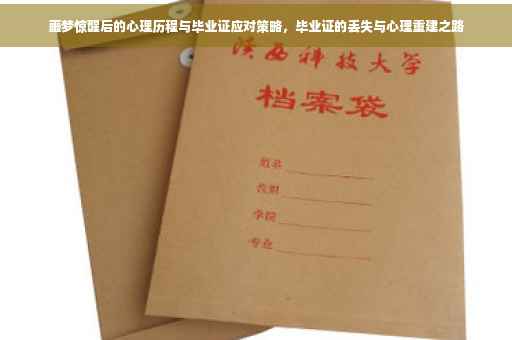 噩梦惊醒后的心理历程与毕业证应对策略，毕业证的丢失与心理重建之路
陕西科技大学
档案袋
姓名
性别
学院
专业